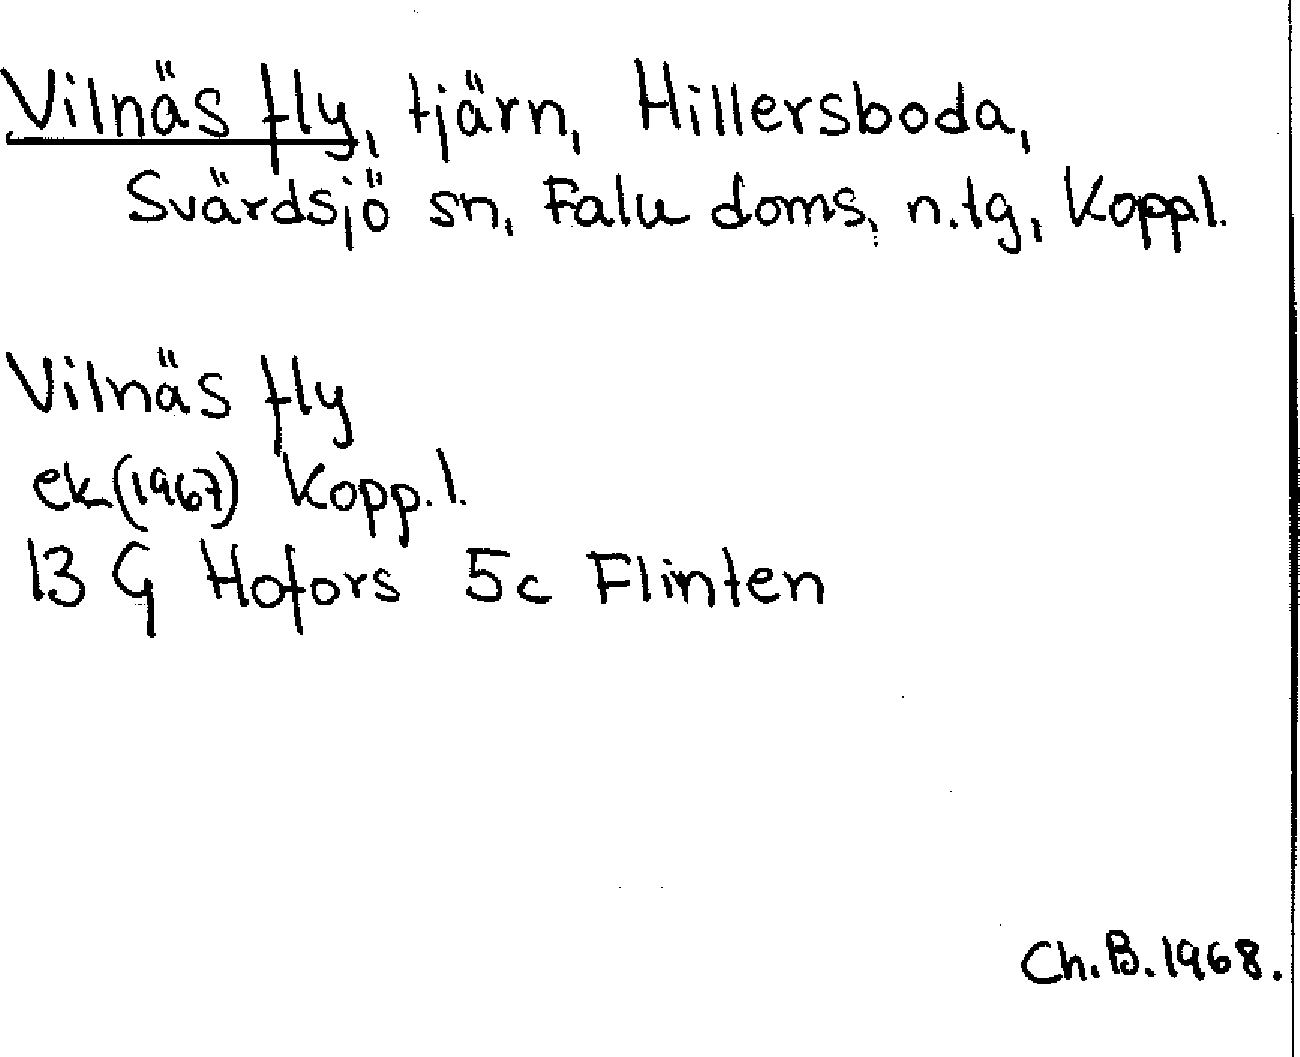 Vilnäs fly, tjärn, Hillersboda,
Svärdsjö sn, Falu doms, n.tg, Koppl.
Vilnäs fly
ek (1967) Kopp.l.
13 G Hofors 5c Flinten
Ch.B.1968.